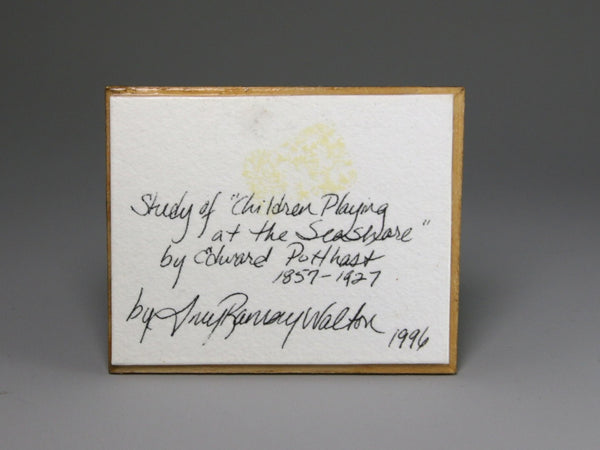 Study of "Children Playing
at the Seashore"
by Edward Potthast
1857-1927
by Ramsay Walton
1996